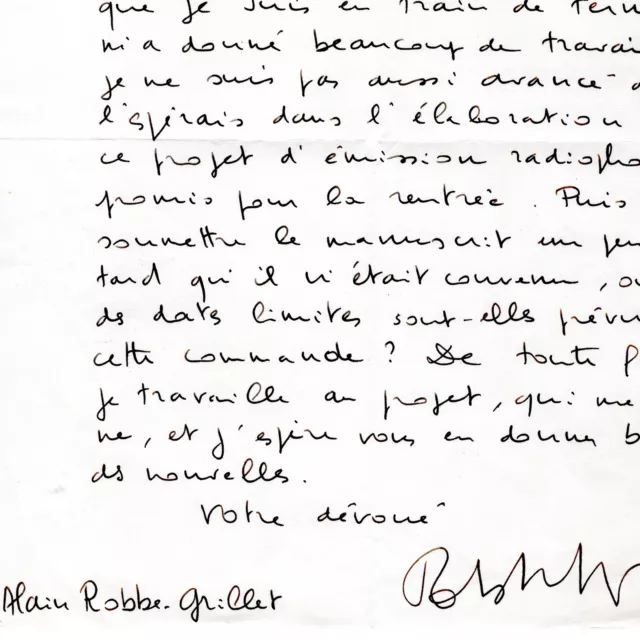 que je suis en train de term
m'a donné beaucoup de travai
je ne suis pas aussi avancé
l'espérais dans l'élaboration
ce projet d'émission radiopho
promis pour la rentrée. Puis
soumettre le manuscrit un peu
tard qu'il n'était convenu, ou
des dates limites sont-elles prévu
cette commande ? De toute
je travaille au projet, qui me
ne, et j'espère vous en donner b
des nouvelles.
Votre dévoué
Alain Robbe-Grillet